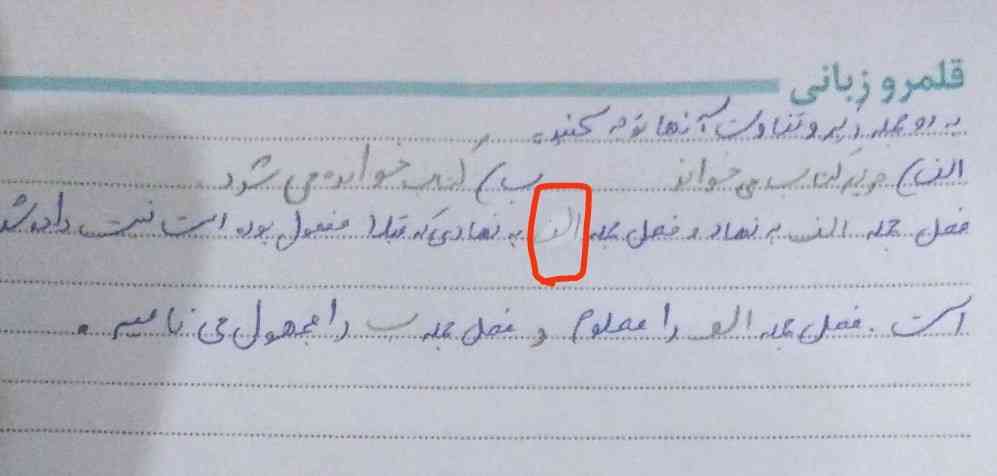 قلمرو زبانی
به دو جمله زیر و تفاوت آنها توجه کنید.
الف) مریم کتاب می خواند ب) کتاب خوانده می شود
فعل جمله الف به نهاد و فعل جمله الف به نهادی که قبلا مفعول بوده است نسبت داده شده
است. فعل جمله الف را معلوم و فعل جمله ب را مجهول می نامیم.